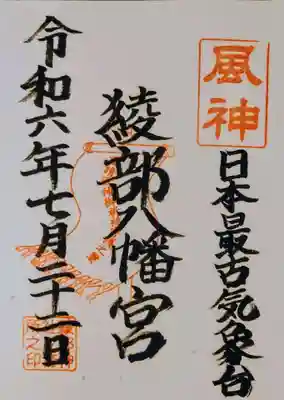 風神
日本最古気象台
綾部八幡宮
令和六年七月二十二日
之印